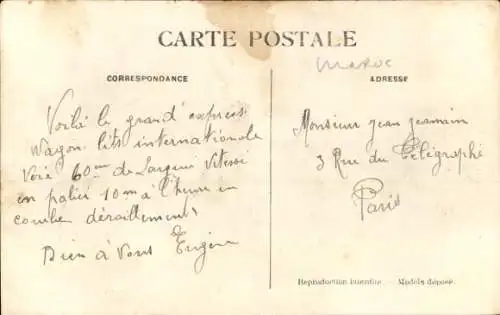 CARTE POSTALE
Maroc
CORRESPONDANCE
ADRESSE
Voilà le grand express
Wagon lits internationale
Voie 60cm de Largeur Vitesse
en palier 10m à l'heure en
courbe déraillement
Bien à vous Eugène
Monsieur Jean Jeamain
3 Rue du Télégraphe
Paris
Reproduction interdite - Modèle déposé.